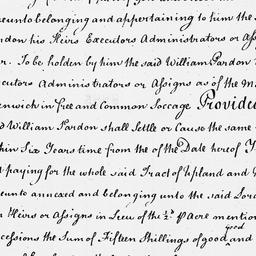 eunto belonging and appertaining to him the s
rdon his Heirs Executors Administrators or Ass
r. To be holden by him the said William Pardon
cutors Administrators or Assigns as of the M
enwich in free and Common Soccage Provide
d William Pardon shall Settle or Cause the same
thin Six Years time from the of the Date hereof
paying for the whole said Tract of Upland and
eunto annexed and belonging unto the said Lord
n Heirs or Assigns in Lieu of the ½d ₱ Acre mention
cessions the Sum of Fifteen Shillings of good and